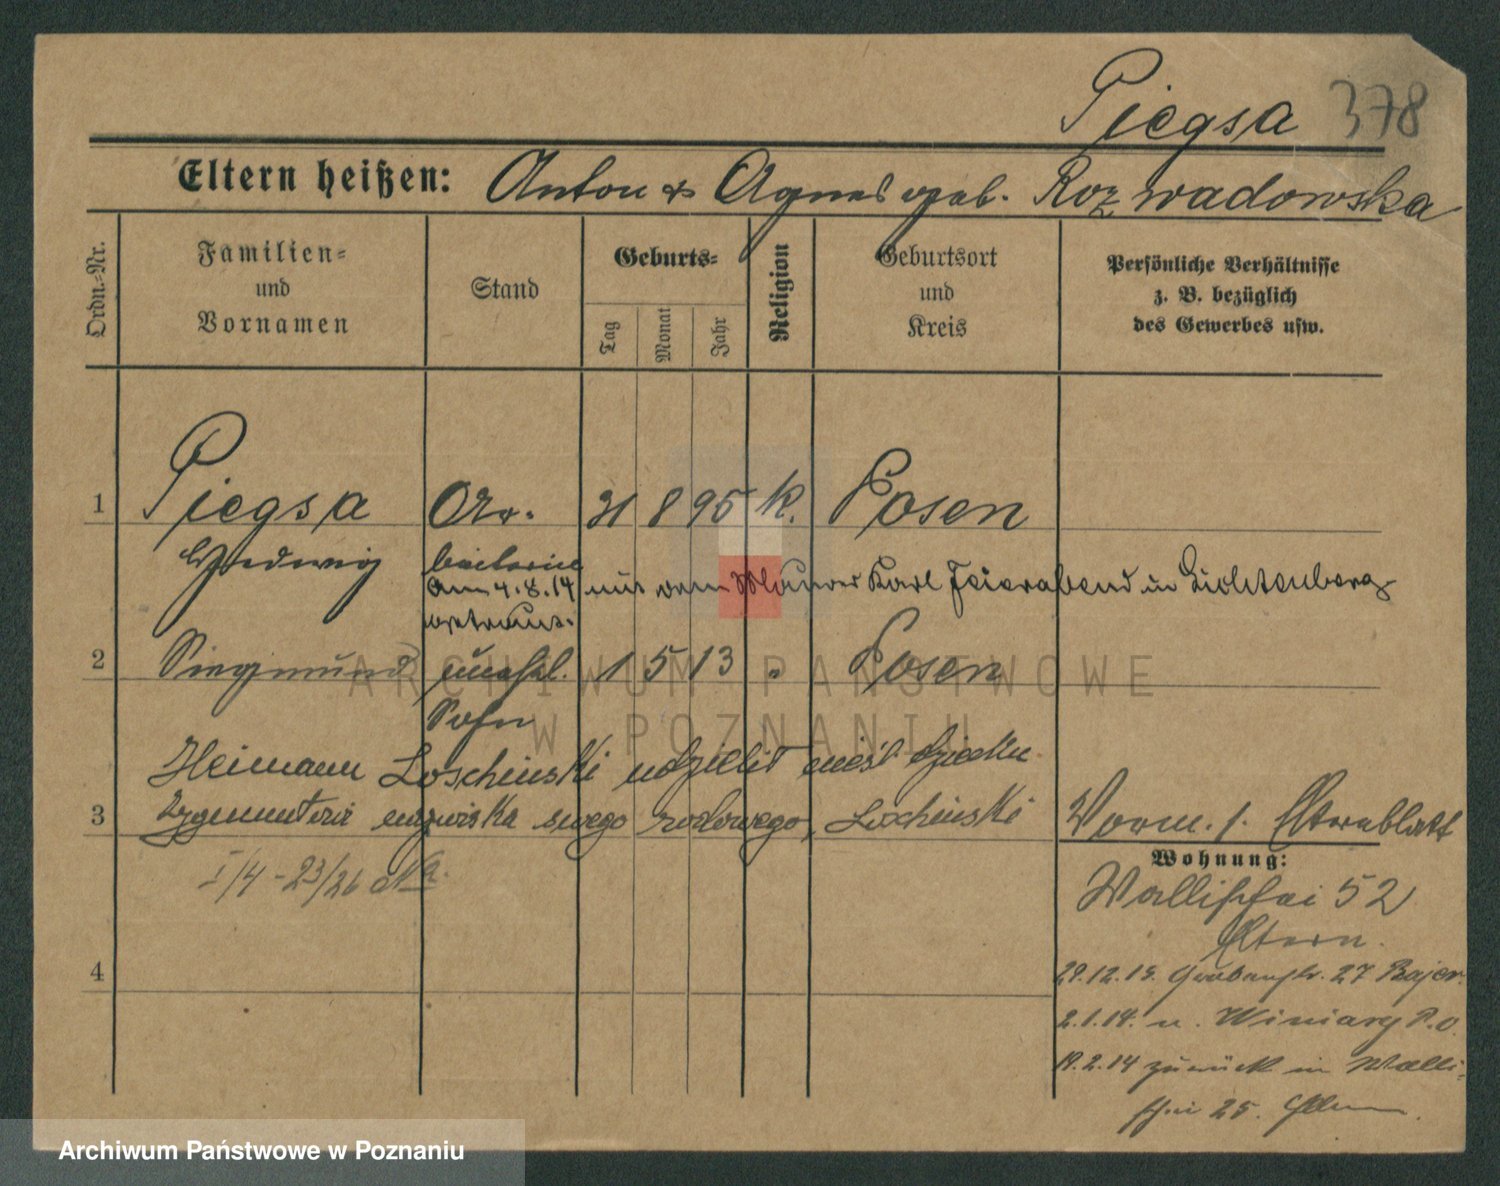 Piegsa 378
Eltern heißen: Anton & Agnes geb. Rozwadowska
Ordn.-Nr.
Familien-
und
Vornamen
Stand
Geburts-
Tag
Monat
Jahr
Religion
Geburtsort
und
Kreis
Persönliche Verhältnisse
z. B. bezüglich
des Gewerbes usw.
1 Piegsa Ar- 31 8 95 k. Posen
Hedwig beiterin
am 4.8.14 mit dem Maurer Karl Feierabend in Lichtenberg
getraut.
2 Siegmund unehl. 1 5 13 " Posen
Sohn
Heimann Loschinski udzielił nieśl. dziecku
3 Zygmuntowi nazwiska swego rodowego, Loschinski
Vorm. s. Elternblatt
I/4 - 23/26
Wohnung:
Wallischei 52
Eltern.
29.12.13. Grabenstr. 27 Bajer.
2.1.14. n. Winiary P.O.
19.2.14 zurück in Walli-
schei 25. Eltern
4
ARCHIWUM PAŃSTWOWE
W POZNANIU
Archiwum Państwowe w Poznaniu